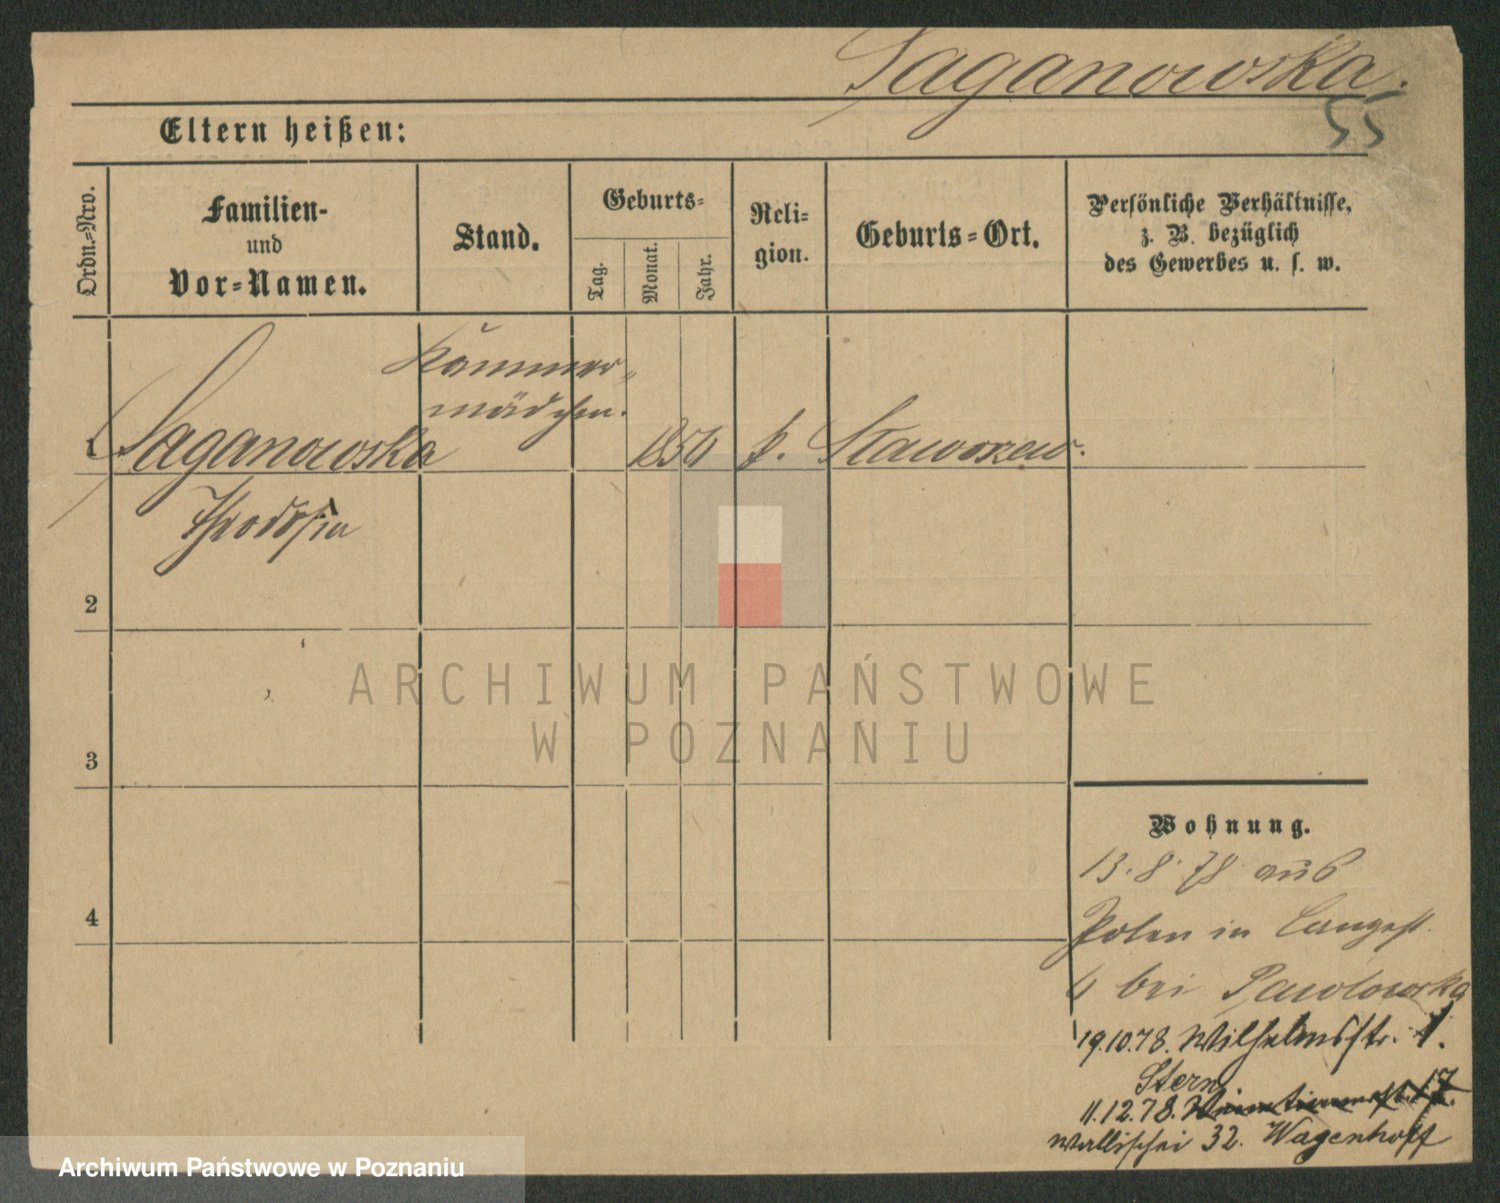 Saganowska.
55
Eltern heißen:
Ordn.-Nro.
Familien-
und
Vor-Namen.
Stand.
Geburts-
Tag.
Monat.
Jahr.
Reli-
gion.
Geburts-Ort.
Persönliche Verhältnisse,
z. B. bezüglich
des Gewerbes u. s. w.
Kammer-
mädchen.
1 Saganowska 1854 k.
Theodosia
2
3
4
ARCHIWUM PAŃSTWOWE
W POZNANIU
Wohnung.
13.8.78 aus
Polen in Langest.
bei Pawlowska
19.10.78. Wilhelmsstr. 1.
Stern
11.12.78.
Wallischei 32. Wagenhoff
Archiwum Państwowe w Poznaniu